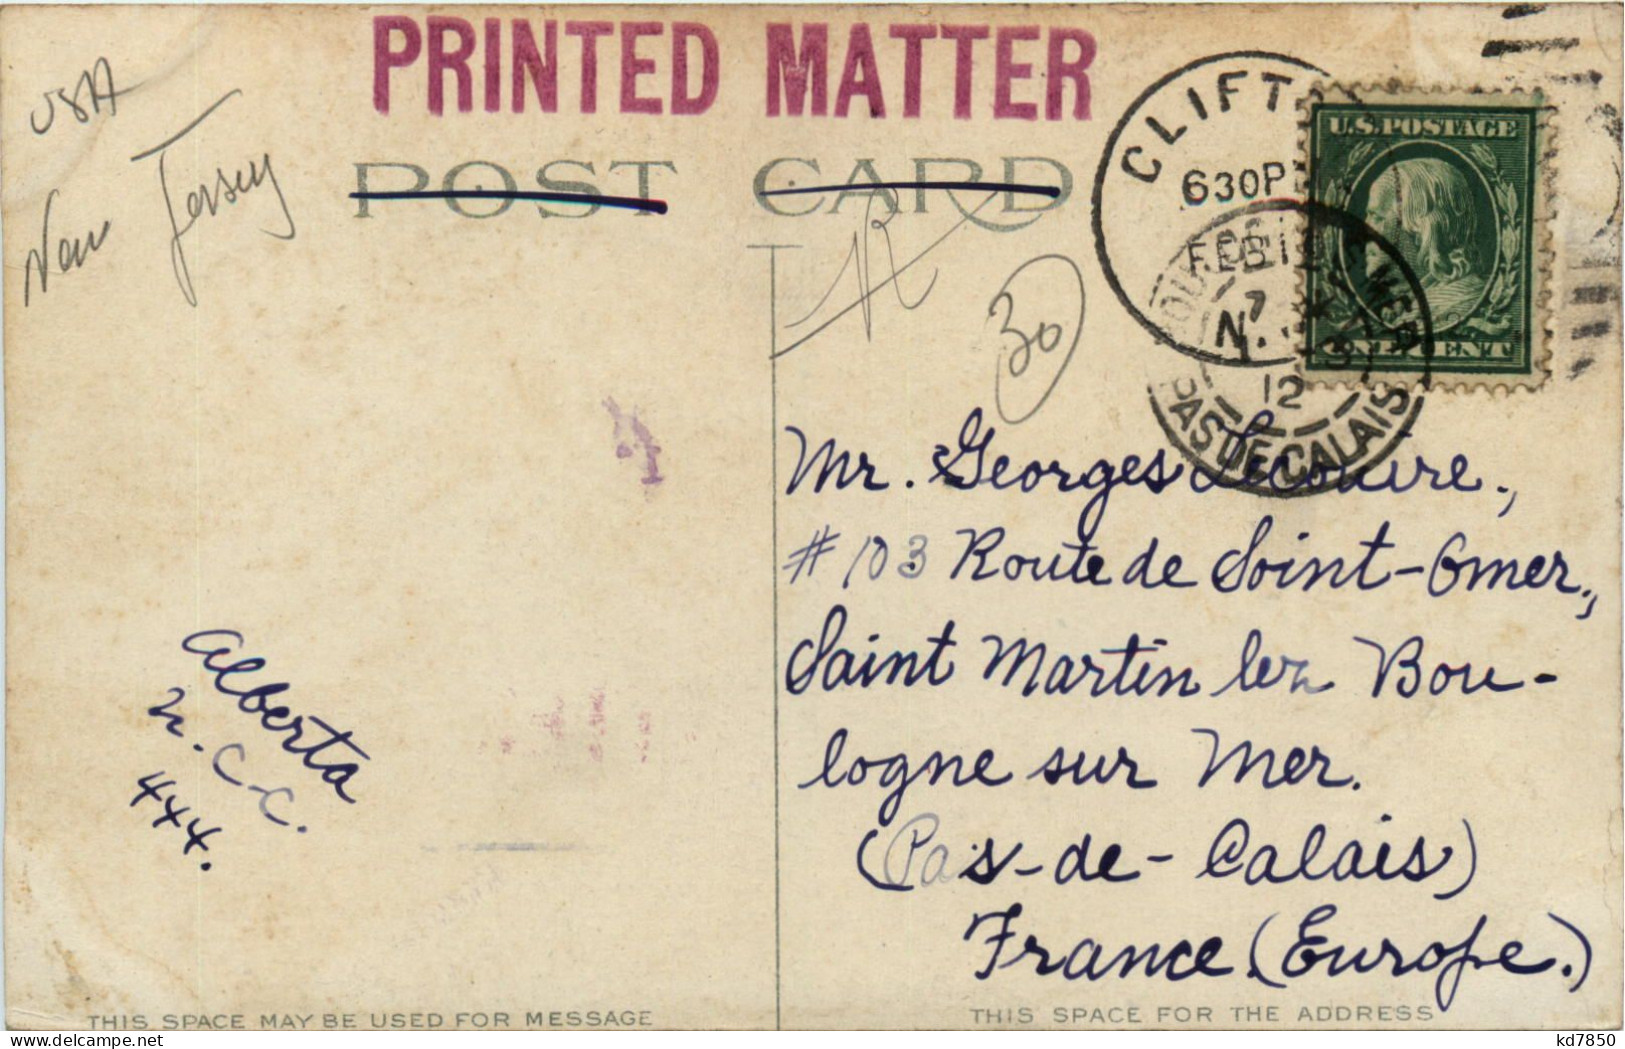 PRINTED MATTER
USA
New Jersey
POST CARD
30
CLIFT
630P
FEB 12
N.
7
12
PAS DE CALAIS
U.S. POSTAGE
ONE CENT
Mr. Georges Lecouire.,
# 103 Route de Saint-Omer.,
Saint Martin lez Bou-
logne sur Mer.
(Pas-de-Calais)
France. (Europe.)
Alberta
N.C.C.
444.
THIS SPACE MAY BE USED FOR MESSAGE
THIS SPACE FOR THE ADDRESS
kd7850